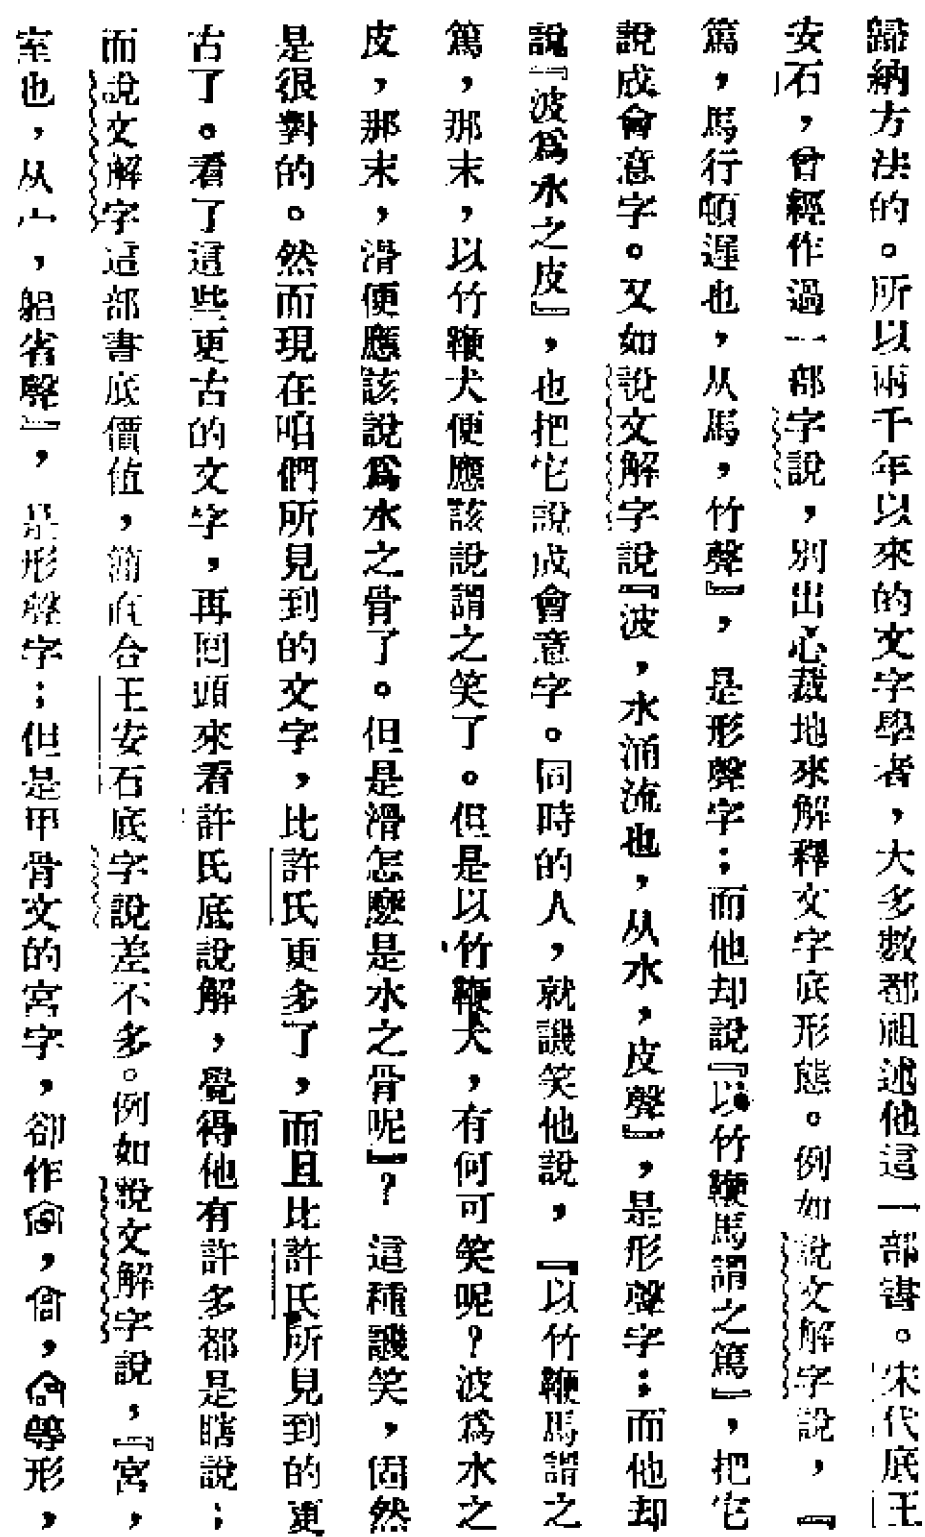 歸納方法的。所以兩千年以來的文字學者，大多數都祖述他這一部書。宋代底王
安石，曾經作過一部字說，別出心裁地來解釋文字底形態。例如說文解字說，『
篤，馬行頓遲也，从馬，竹聲』，是形聲字；而他却說『以竹鞭馬謂之篤』，把它
說成會意字。又如說文解字說『波，水涌流也，从水，皮聲』，是形聲字；而他却
說『波爲水之皮』，也把它說成會意字。同時的人，就譏笑他說，『以竹鞭馬謂之
篤，那末，以竹鞭犬便應該說謂之笑了。但是以竹鞭犬，有何可笑呢？波爲水之
皮，那末，滑便應該說爲水之骨了。但是滑怎麼是水之骨呢』？這種譏笑，固然
是很對的。然而現在咱們所見到的文字，比許氏更多了，而且比許氏所見到的更
古了。看了這些更古的文字，再回頭來看許氏底說解，覺得他有許多都是瞎說；
而說文解字這部書底價值，簡直合王安石底字說差不多。例如說文解字說，『宮，
室也，从宀，躳省聲』，是形聲字；但是甲骨文的宮字，卻作，，等形，